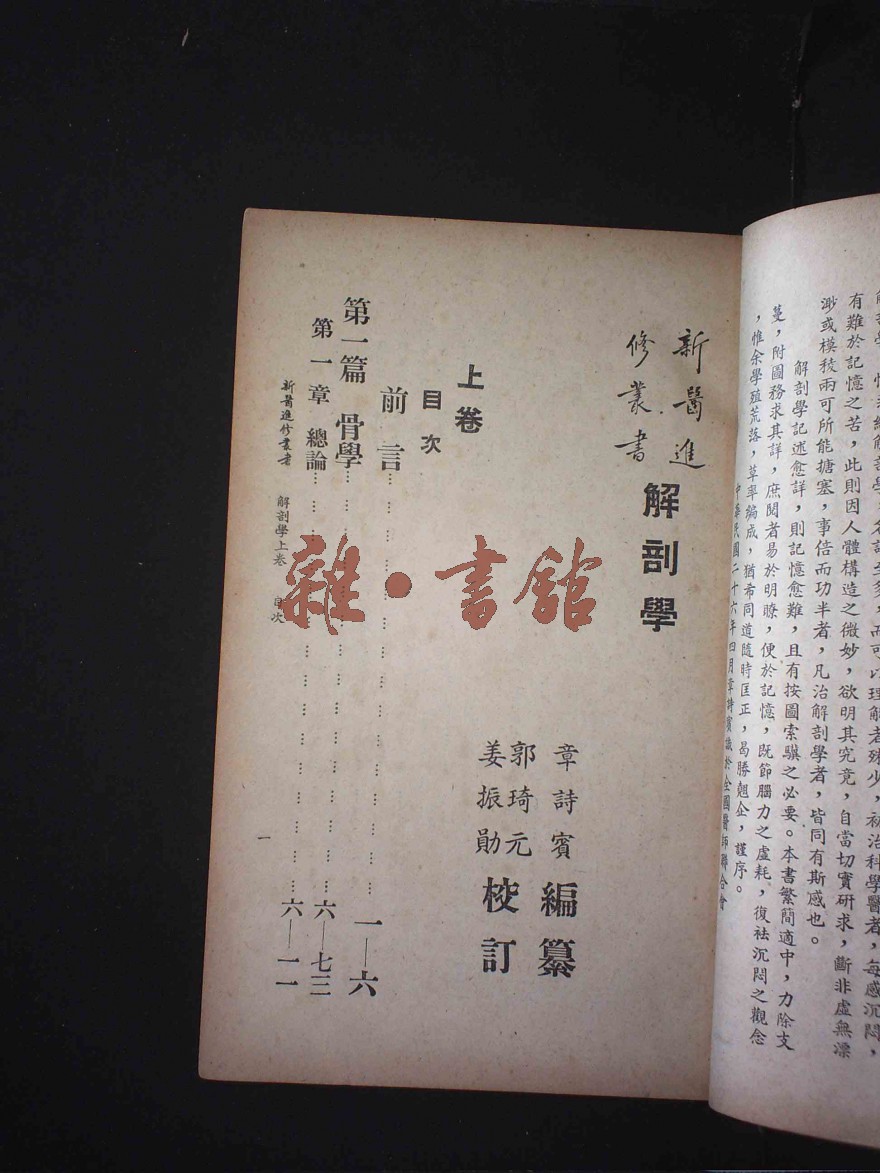 有難於記憶之苦，此則因人體構造之微妙，欲明其究竟，自當切實研求，斷非虛無漂
渺或模稜兩可所能搪塞，事倍而功半者，凡治解剖學者，皆同有斯感也。
解剖學記述愈詳，則記憶愈難，且有按圖索驥之必要。本書繁簡適中，力除支
蔓，附圖務求其詳，庶閱者易於明瞭，便於記憶，既節腦力之虛耗，復袪沉悶之觀念
，惟余學殖荒落，草率編成，猶希同道隨時匡正，曷勝翹企，謹序。
中華民國二十六年四月章詩賓識於全國醫師聯合會
新醫進
修叢書
解剖學
章詩賓 編纂
郭琦元
姜振勛 校訂
上卷
目次
前言………………一—六
第一篇 骨學………………六—七三
第一章 總論………………六—一一
新醫進修叢書 解剖學上卷 目次
一
雜·書館